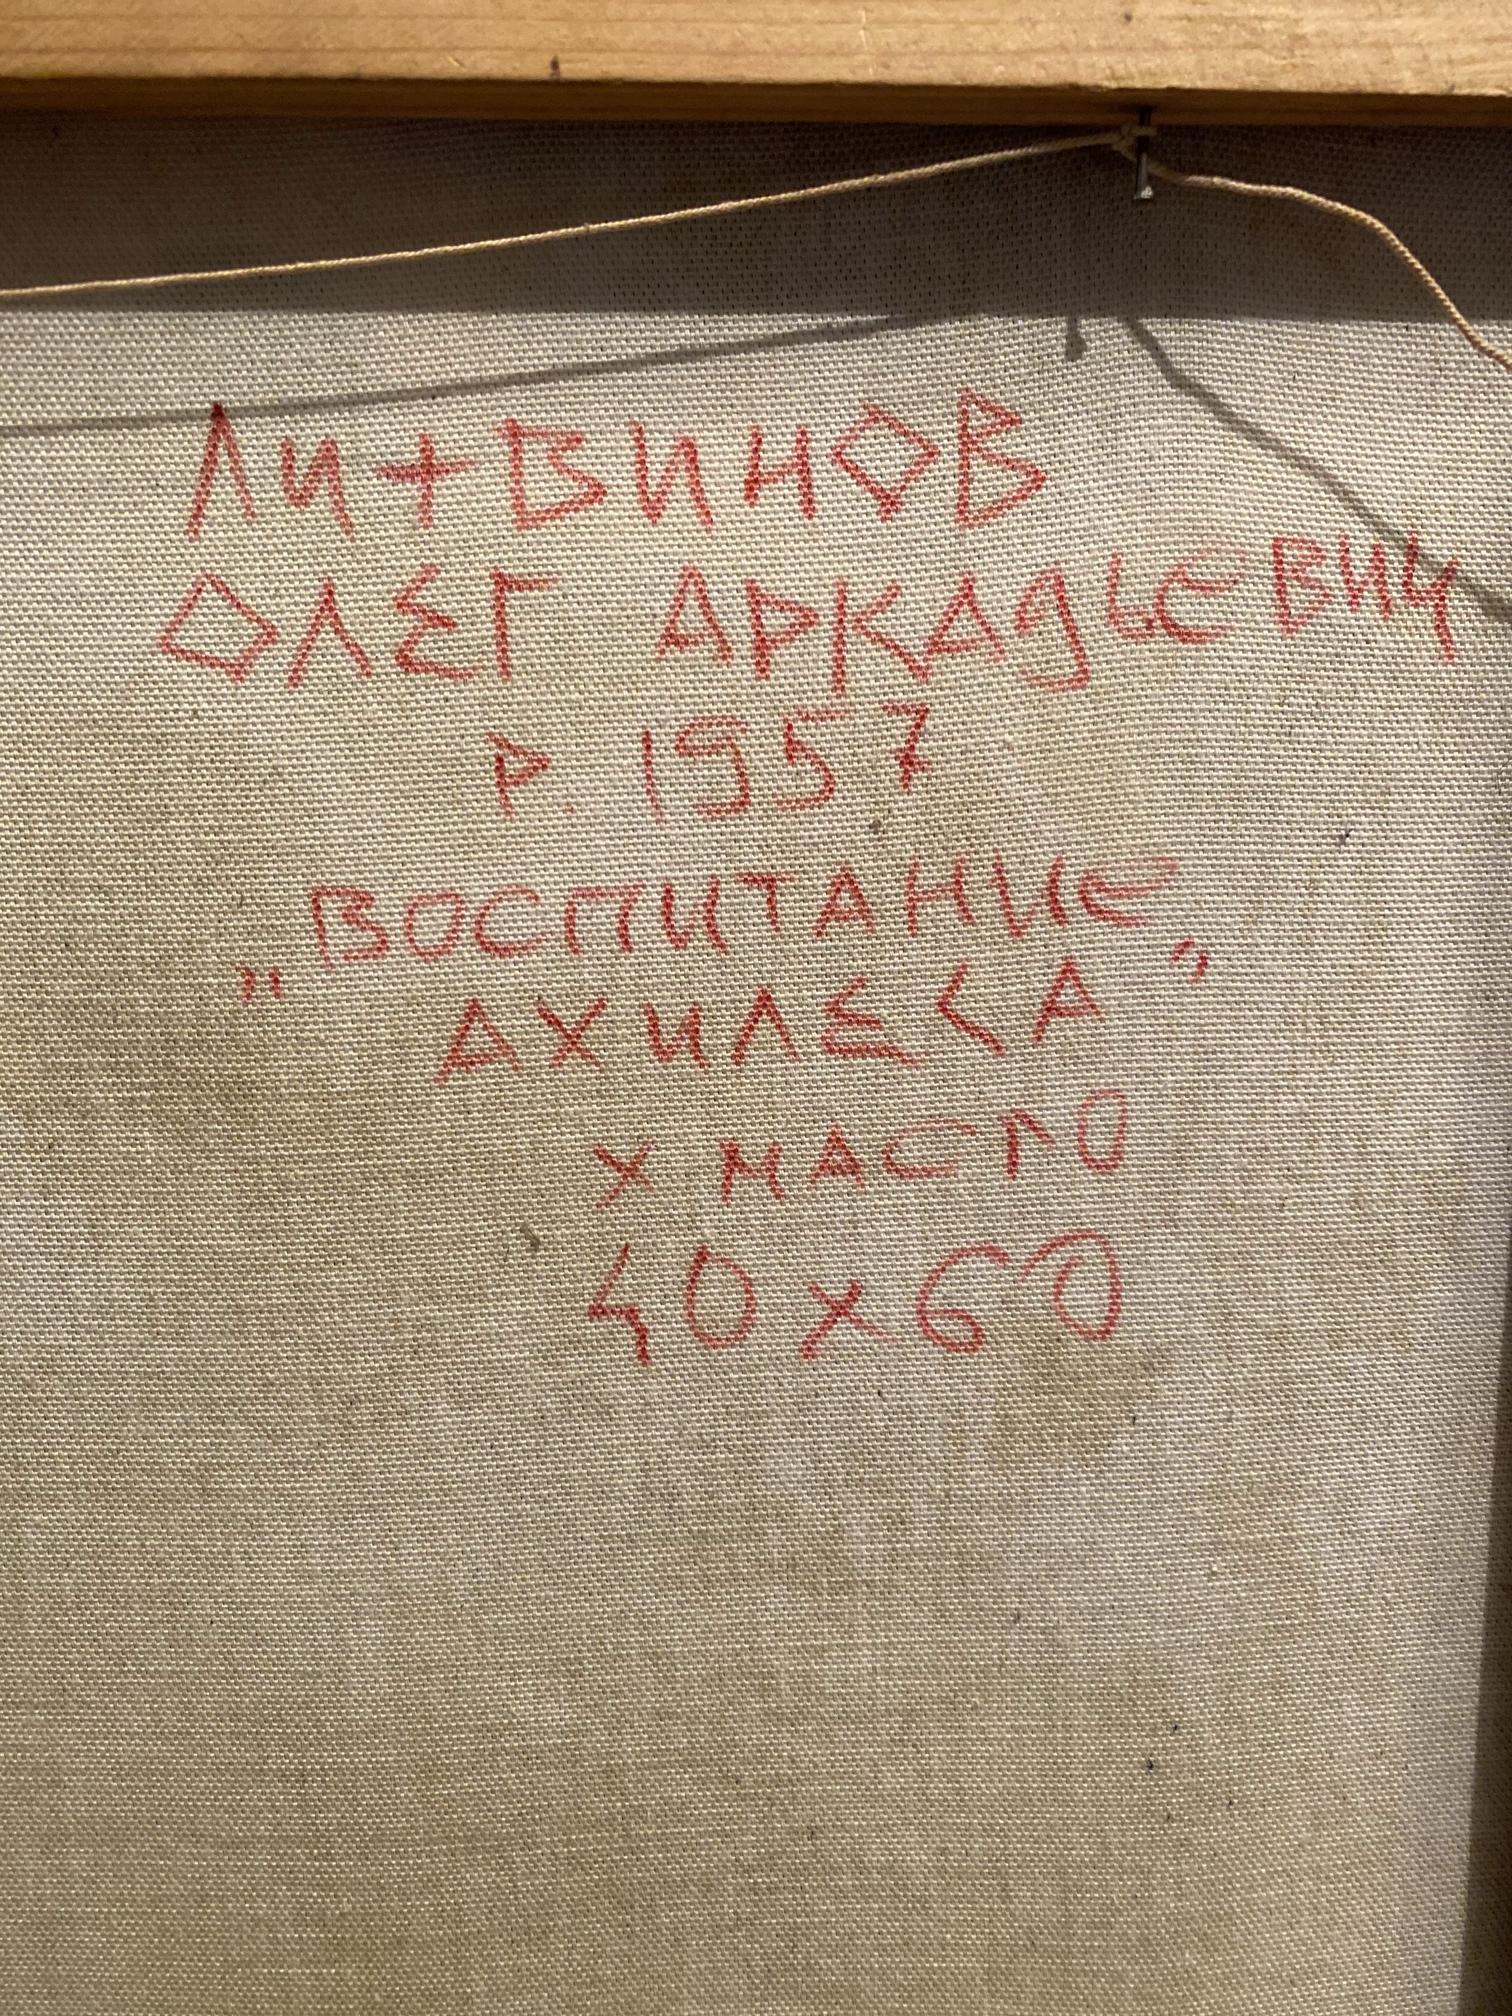 ЛИТВИНОВ
ОЛЕГ АРКАДЬЕВИЧ
Р. 1957
"ВОСПИТАНИЕ
АХИЛЕСА"
Х МАСЛО
40х60